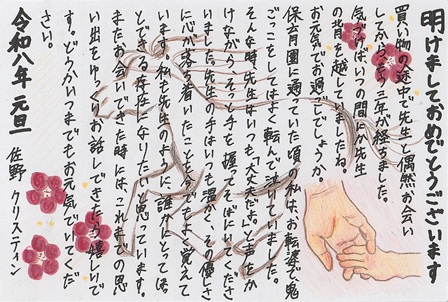 明けましておめでとうございます
買い物の途中で先生と偶然お会い
してから、もう二年が経ちました。
気づけばいつの間にか先生
の背を越していましたね。
お元気でお過ごしでしょうか。
保育園に通っていた頃の私は、お転婆で鬼
ごっこをしてはよく転んで泣いていました。
そんな時、先生はいつも「大丈夫だよ」と声をか
けながらそっと手を握ってそばにいてくださ
いました。先生の手はいつも温かく、その優しさ
に心が落ち着いたことを今でもよく覚えて
います。私も先生のように、誰かにとってほっ
とできる存在になりたいと思っています。
またお会いできた時には、これまでの思
い出をゆっくりお話しできたら嬉しいで
す。どうかいつまでもお元気でいてくだ
さい。
令和八年 元旦
佐野 クリスティン